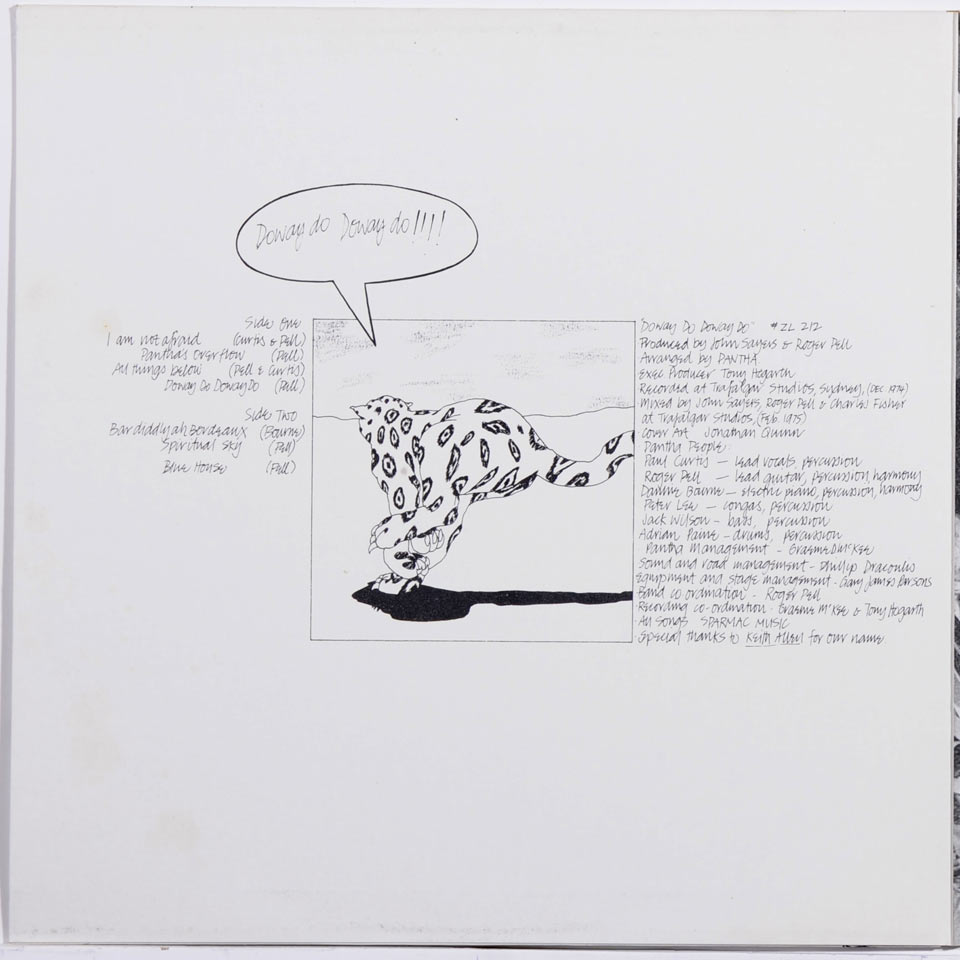 Doway do Doway do!!!!
Side One
I am not afraid (Curtis & Pell)
Pantha's Overflow (Pell)
All things below (Pell & Curtis)
Doway Do Doway Do (Pell)
Side Two
Bardiddlyah Bordeaux (Bourne)
Spiritual Sky (Pell)
Blue House (Pell)
"Doway Do Doway Do" # ZL 212
Produced by John Sayers & Roger Pell
Arranged by PANTHA.
Exec Producer Tony Hogarth
Recorded at Trafalgar Studios, Sydney, (DEC 1974)
Mixed by John Sayers, Roger Pell & Charles Fisher
at Trafalgar Studios, (Feb. 1975)
Cover Art Jonathan Quinn
Pantha People:
Paul Curtis — lead vocals, percussion
Roger Pell — lead guitar, percussion, harmony
Bourne — electric piano, percussion, harmony
Peter Lee — congas, percussion
Jack Wilson — bass, percussion
Adrian Paine — drums, percussion
Pantha Management - Graeme McKee
Sound and road management - Phillip Dracoulis
Equipment and stage management - Gary James Parsons
Band co ordination - Roger Pell
Recording co-ordination - Graeme McKee & Tony Hogarth
All Songs SPARMAC MUSIC
Special thanks to Keith Allen for our name